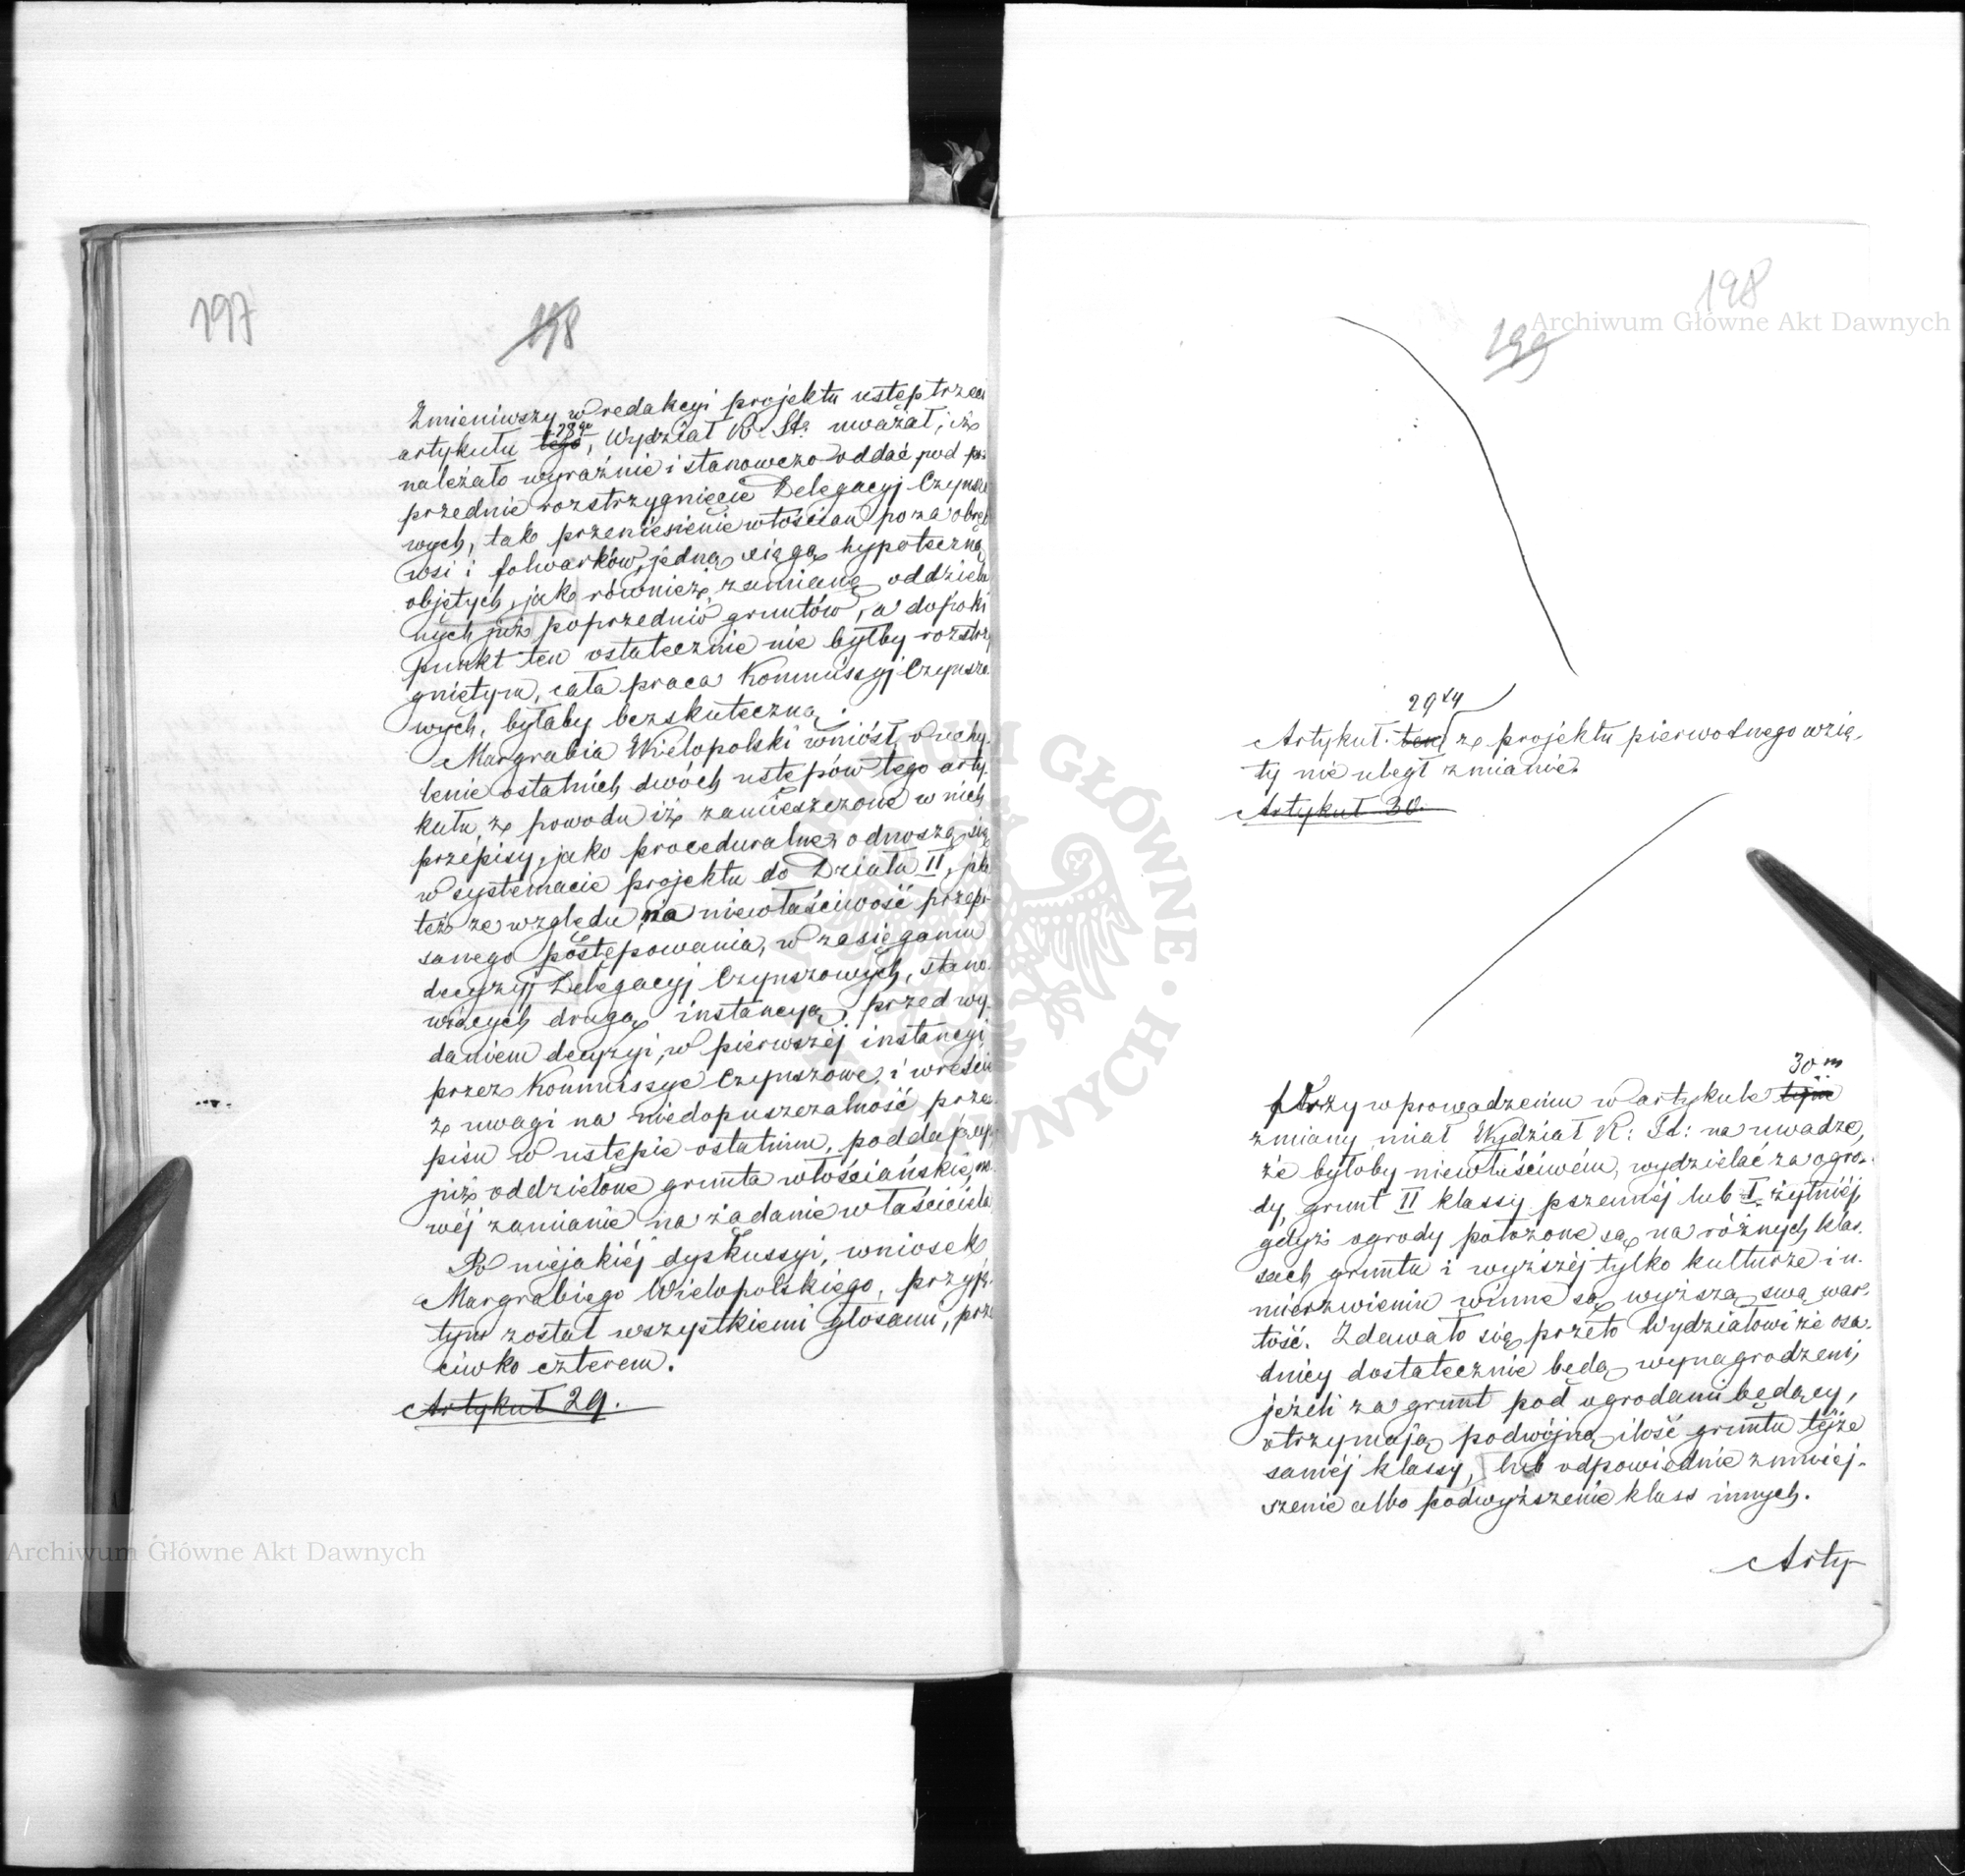 197
198
Zmieniwszy w redakcyi projektu ustęp trzeci
28go
artykułu tego, Wydział R: St: uważał, iż
należało wyraźnie i stanowczo oddać pod po-
przednie rozstrzygnięcie Delegacyj Czynszo
wych, tak przeniesienie włościan poza obręb
wsi i folwarków, jedną xięgą hypoteczną
objętych, jak również zamianę oddzielo
nych już poprzednio gruntów, a dopóki
punkt ten ostatecznie nie byłby rozstrzy
gniętym, cała praca Kommissyj Czynszo
wych, byłaby bezskuteczną.
Margrabia Wielopolski wniósł, o uchy-
lenie ostatnich dwóch ustępów tego arty-
kułu, z powodu iż zamieszczone w nich
przepisy, jako proceduralne, odnoszą się
w systemacie projektu do Działu II, jak
też ze względu na niewłaściwość przepi-
sanego postępowania, w zasięganiu
decyzyj Delegacyj Czynszowych, stano-
wiących drugą instancyą, przed wy-
daniem decyzyi, w pierwszéj instancyi
przez Kommissye Czynszowe, i wreście
z uwagi na niedopuszczalność prze-
pisu w ustępie ostatnim, poddającego
już oddzielone grunta włościańskie, no-
wéj zamianie na żądanie właściciela.
Po niejakiéj dyskussyi, wniosek
Margrabiego Wielopolskiego, przyję-
tym został wszystkiemi głosami, prze
ciwko czterem.
Artykuł 29.
198
199
29ty
Artykuł ten z projektu pierwotnego wzię-
ty nie uległ zmianie.
Artykuł 30.
30m
Przy wprowadzeniu w artykule tym
zmiany miał Wydział R: St: na uwadze,
że byłoby niewłaściwém, wydzielać za ogro-
dy, grunt II klassy pszennéj lub I żytniéj,
gdyż ogrody położone są na różnych klas-
sach gruntu i wyższéj tylko kulturze i u-
mierzwieniu winne są wyższą swą war-
tość. Zdawało się przeto Wydziałowi że osa-
dnicy dostatecznie będą wynagrodzeni,
jeżeli za grunt pod ogrodami będący,
otrzymają podwójną ilość gruntu téjże
saméj klassy, lub odpowiednie zmniej-
szenie albo podwyższenie klass innych.
Arty
Archiwum Główne Akt Dawnych
Archiwum Główne Akt Dawnych